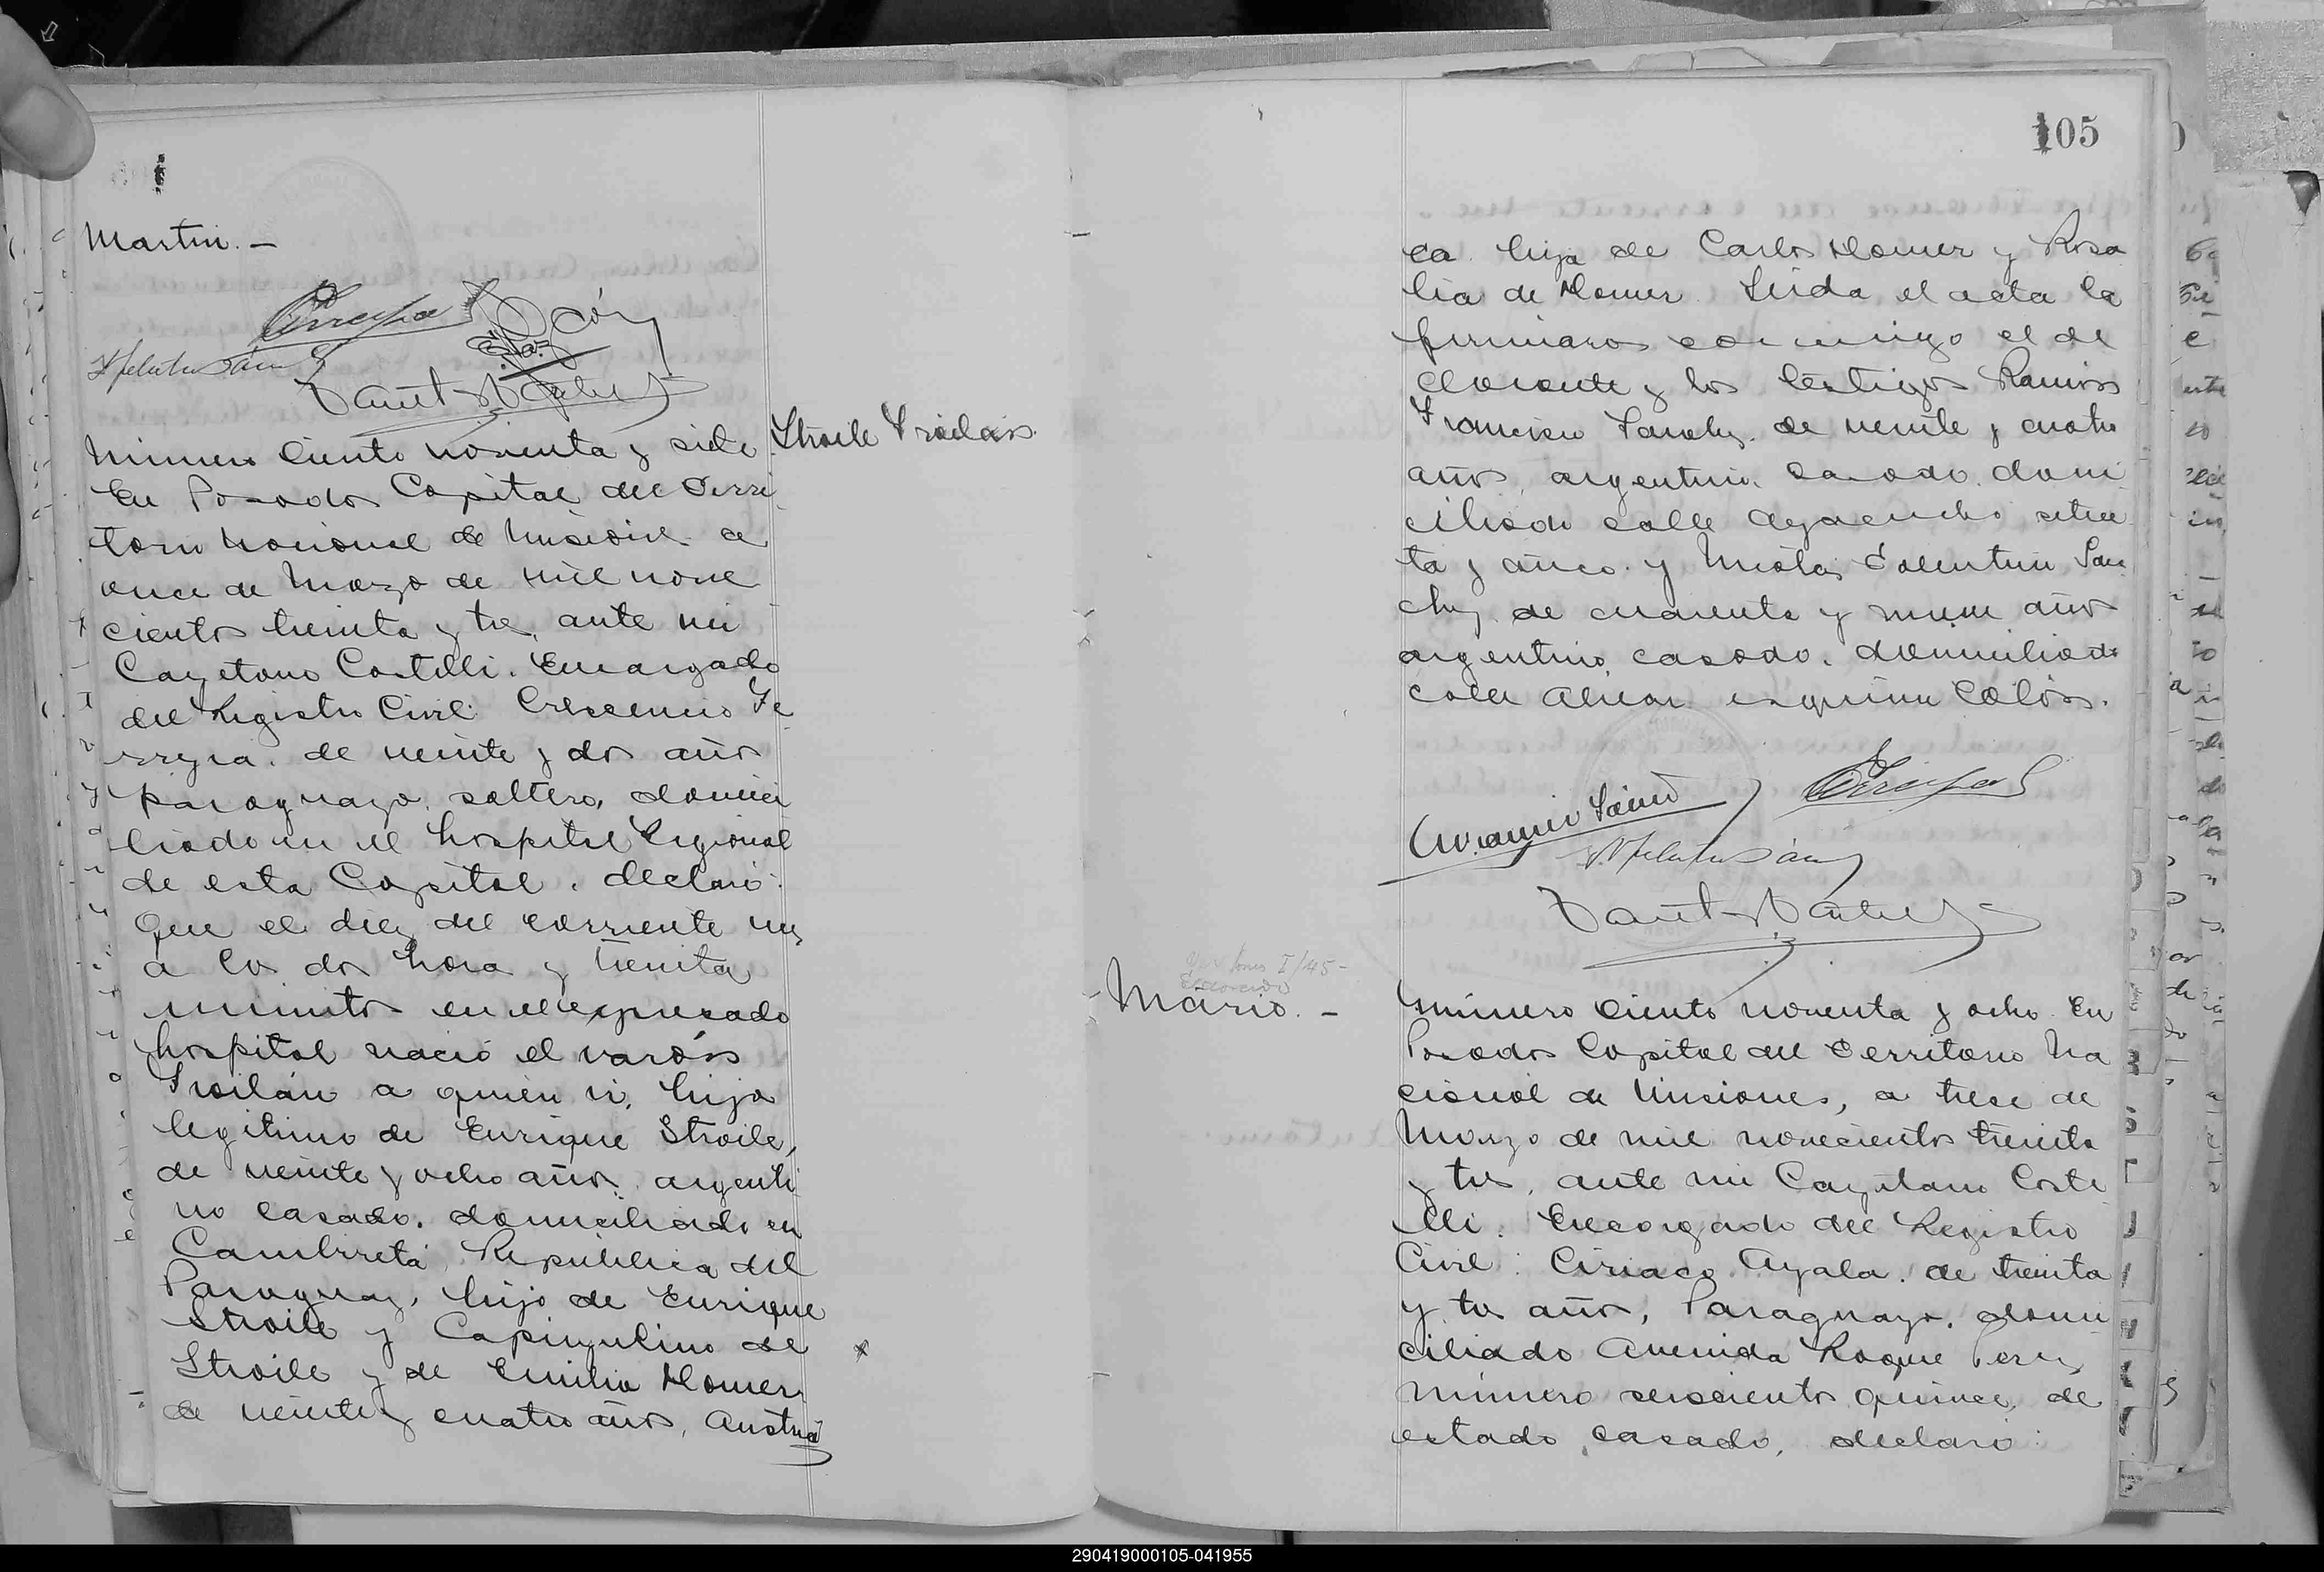 Martin. —
Número ciento noventa y siete
En Posadas Capital del Terri
torio Nacional de Misiones a
once de Marzo de mil nove
cientos treinta y tres, ante mi
Cayetano Castelli. Encargado
del Registro Civil: Crescencio Fe
rreyra. de veinte y dos años
paraguayo, soltero, domici
liado en el hospital Regional
de esta Capital. declaró:
Que el diez del corriente mes
a las dos horas y treinta
minutos en el expresado
hospital nació el varón
Froilán a quien vi, hijo
legitimo de Enrique Stroile,
de veinte y ocho años, argenti
no casado. domiciliado en
Cambiretá, República del
Paraguay, hijo de Enrique
Stroile y Capingulino de
Stroile y de Emilia Homer,
de veinte y cuatro años, Austria
Stroile Froilán.
105
ca. hija de Carlos Homer y Rosa
lia de Homer. Leida el acta la
firmaron conmigo el de
clarante y los testigos Ramiro
Francisco Sanchez. de veinte y cuatro
años, argentino. casado. domi
ciliado calle Ayacucho seten
ta y cinco. y Nicolás Valentin San
chez. de cuarenta y nueve años
argentino, casado. domiciliado
calle Alvear esquina Colón.
Mario. —
Número ciento noventa y ocho. En
Posadas Capital del Territorio Na
cional de Misiones, a trece de
Marzo de mil novecientos treinta
y tres, ante mi Cayetano Caste
lli. Encargado del Registro
Civil: Ciriaco Ayala. de treinta
y tres años, Paraguayo. domi
ciliado Avenida Roque Perez
número seiscientos quince, de
estado casado, declaró:
290419000105-041955